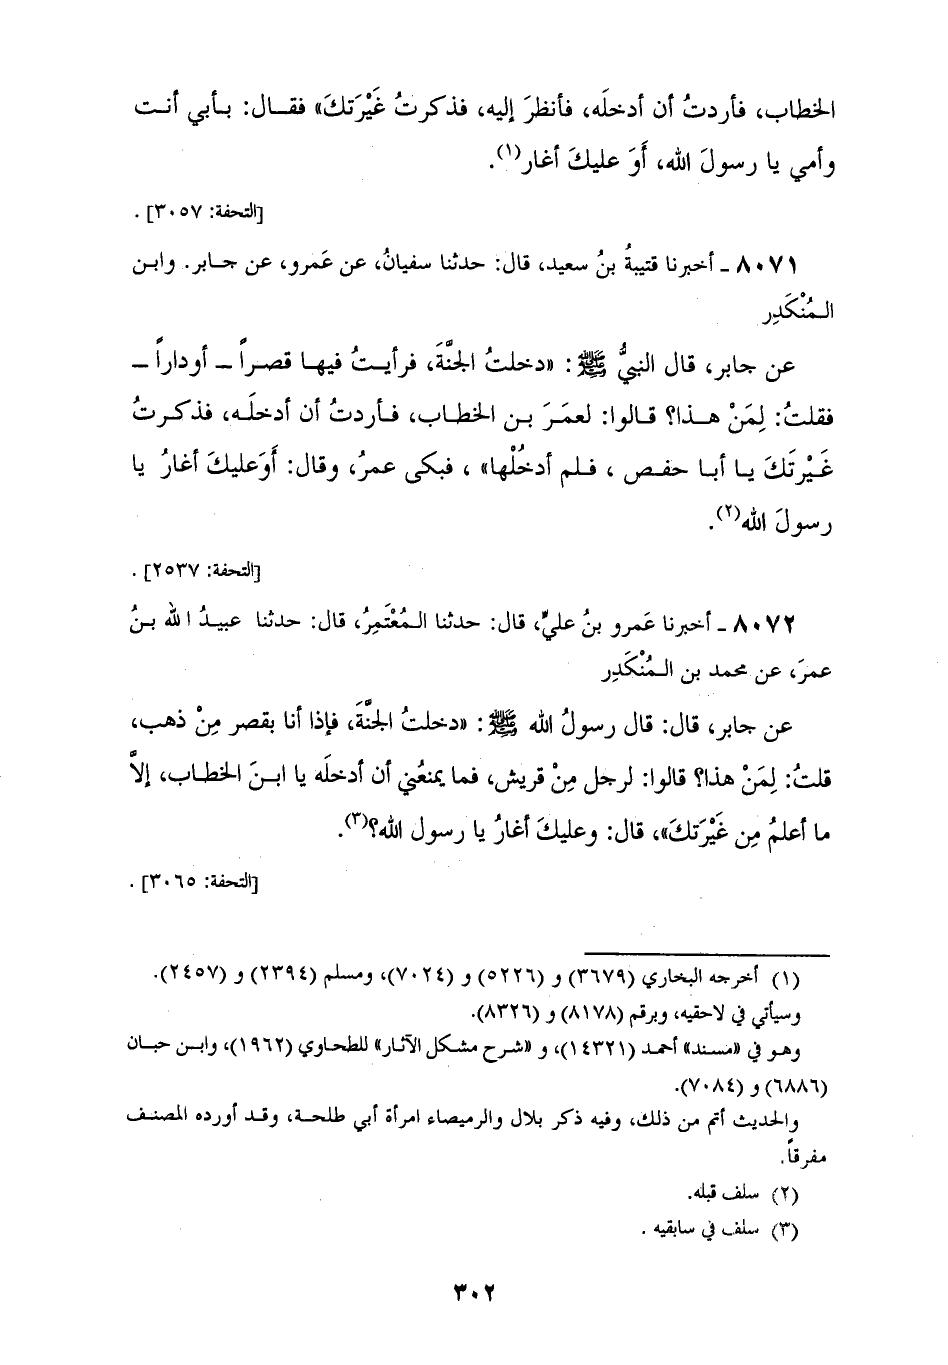 الخطاب، فأردتُ أن أدخلَه، فأنظرَ إليه، فذكرتُ غَيْرَتكَ» فقال: بأبي أنت
وأمي يا رسولَ الله، أَوَ عليكَ أغار(١).
[التحفة: ٣٠٥٧] .
٨٠٧١ ـ أخبرنا قتيبةُ بنُ سعيد، قال: حدثنا سفيانُ، عن عَمرو، عن جابر. وابن
المُنْكَدِر
عن جابر، قال النبيُّ ﷺ : «دخلتُ الجنَّةَ، فرأيتُ فيها قصراً ـ أوداراً ـ
فقلتُ: لِمَنْ هذا؟ قالوا: لعمَرَ بن الخطاب، فأردتُ أن أدخلَه، فذكرتُ
غَيْرَتَكَ يا أبا حفص ، فلم أدخُلْها» ، فبكى عمرُ، وقال: أَوَعليكَ أغارُ يا
رسولَ الله(٢).
[التحفة: ٢٥٣٧] .
٨٠٧٢ ـ أخبرنا عَمرو بنُ عليٍّ، قال: حدثنا المُعْتَمِرُ، قال: حدثنا عبيدُ الله بنُ
عمرَ، عن محمد بن المُنْكَدِر
عن جابر، قال: قال رسولُ الله ﷺ : «دخلتُ الجنَّةَ، فإذا أنا بقصر مِنْ ذهب،
قلتُ: لِمَنْ هذا؟ قالوا: لرجل مِنْ قريش، فما يمنعُني أن أدخلَه يا ابنَ الخطاب، إلاَّ
ما أعلمُ مِن غَيْرَتكَ»، قال: وعليكَ أغارُ يا رسول الله؟(٣).
[التحفة: ٣٠٦٥] .
(١) أخرجه البخاري (٣٦٧٩) و (٥٢٢٦) و (٧٠٢٤)، ومسلم (٢٣٩٤) و (٢٤٥٧).
وسيأتي في لاحقيه، وبرقم (٨١٧٨) و (٨٣٢٦).
وهو في «مسند» أحمد (١٤٣٢١)، و «شرح مشكل الآثار» للطحاوي (١٩٦٢)، وابن حبان
(٦٨٨٦) و (٧٠٨٤).
والحديث أتم من ذلك، وفيه ذكر بلال والرميصاء امرأة أبي طلحة، وقد أورده المصنف
مفرقاً.
(٢) سلف قبله.
(٣) سلف في سابقيه .
٣٠٢